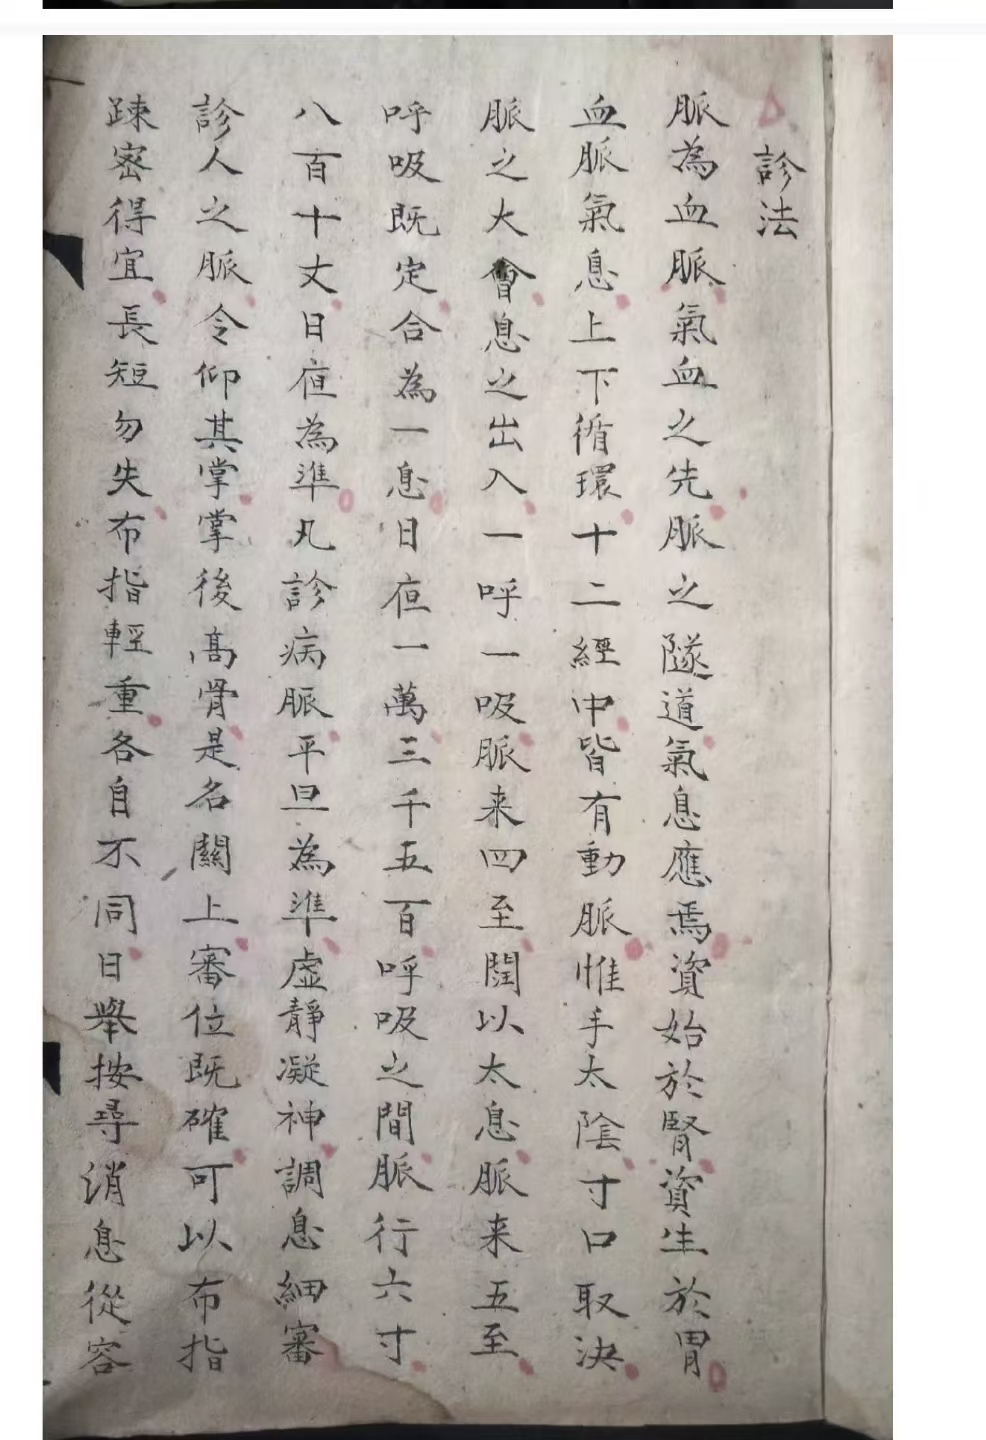 診法
脈為血脈氣血之先脈之隧道氣息應焉資始於腎資生於胃
血脈氣息上下循環十二經中皆有動脈惟手太陰寸口取決
脈之大會息之出入一呼一吸脈来四至閏以太息脈来五至
呼吸既定合為一息日夜一萬三千五百呼吸之間脈行六寸
八百十丈日夜為準凡診病脈平旦為準虛靜凝神調息細審
診人之脈令仰其掌掌後高骨是名關上審位既確可以布指
踈宻得宜長短勿失布指輕重各自不同曰舉按尋消息從容